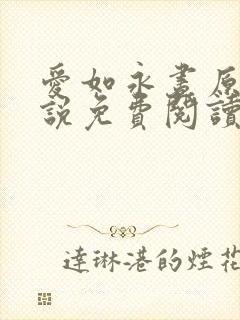 愛如永晝原
說免費閱讀
達琳港的煙花